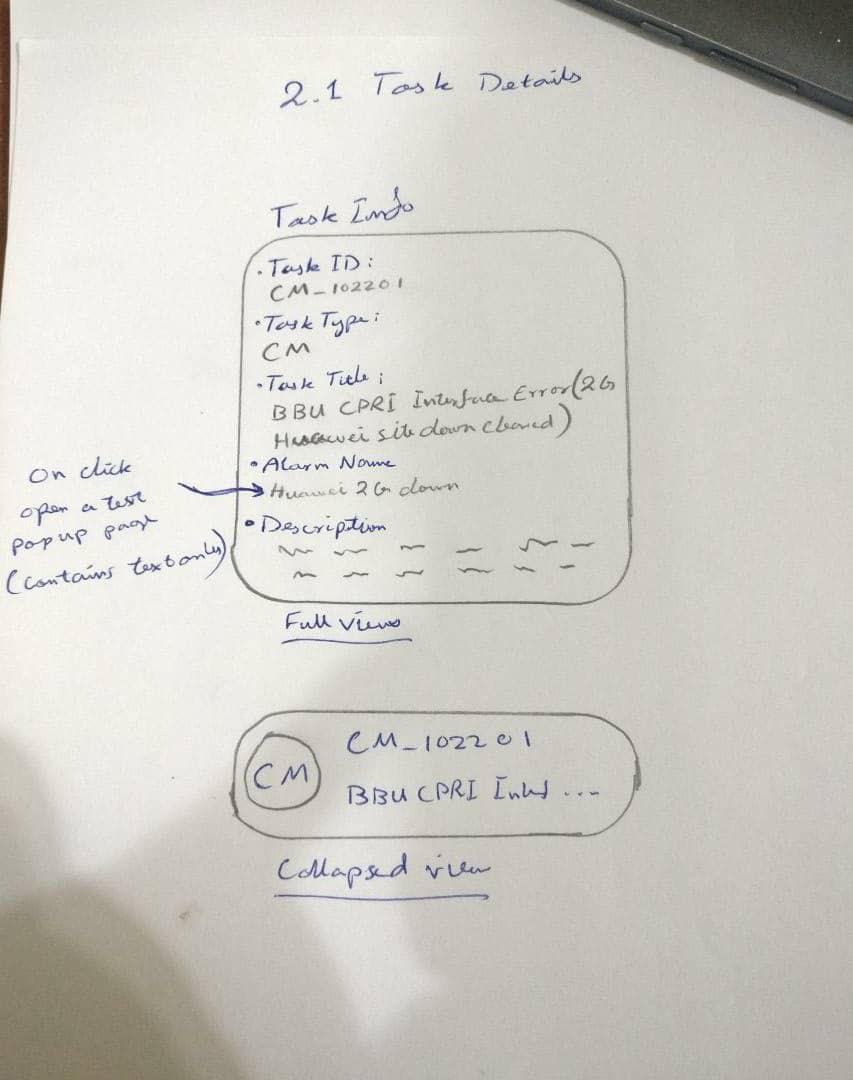 2.1 Task Details
Task Info
• Task ID :
CM_102201
• Task Type :
CM
• Task Title ;
BBU CPRI Interface Error (2G
Huawei site down cleared)
• Alarm Name
Huawei 2G down
• Description
On click
open a text
pop up page
(contains text only)
Full view
CM
CM_102201
BBU CPRI Intef ....
Collapsed view